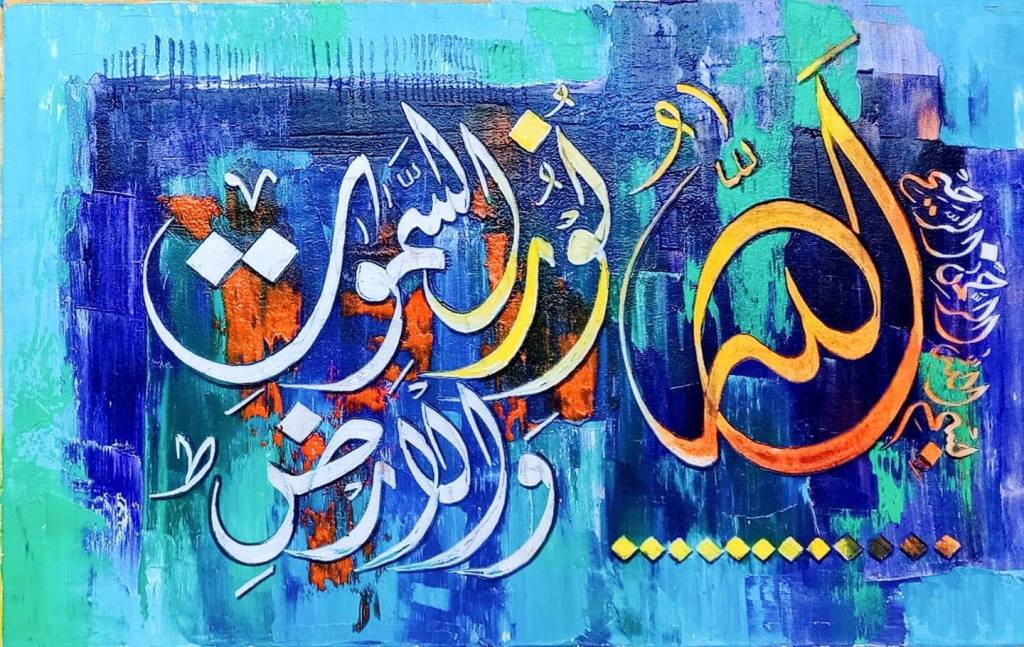 بسم الله الرحمن الرحيم
اَللّٰهُ نُوْرُ السَّمٰوٰتِ
وَالْاَرْضِ ط